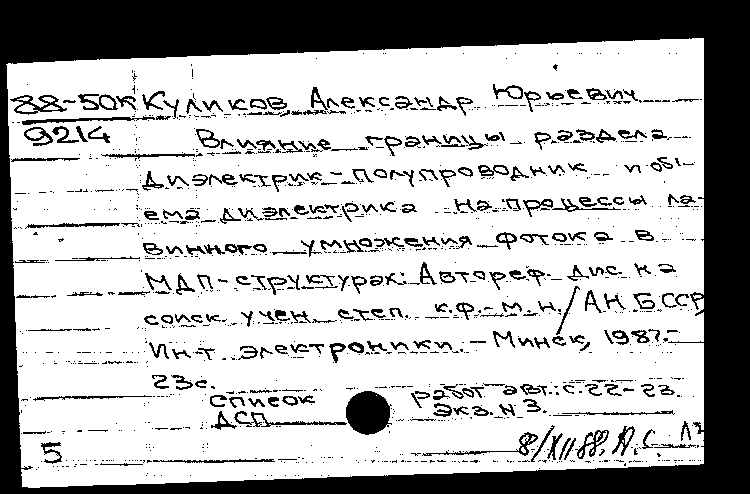 88-50К Куликов, Александр Юрьевич
9214 Влияние границы раздела
диэлектрик-полупроводник и объ-
ема диэлектрика на процессы ла-
винного умножения фотока в
МДП-структурах: Автореф. дис. на
соиск. учен. степ. к.ф.-м.н. / АН БССР,
Ин-т электроники. - Минск, 1987.-
23с.
Список работ авт.: с. 22-23.
ДСП Экз. N 3.
5 8/XII 88. А.С.